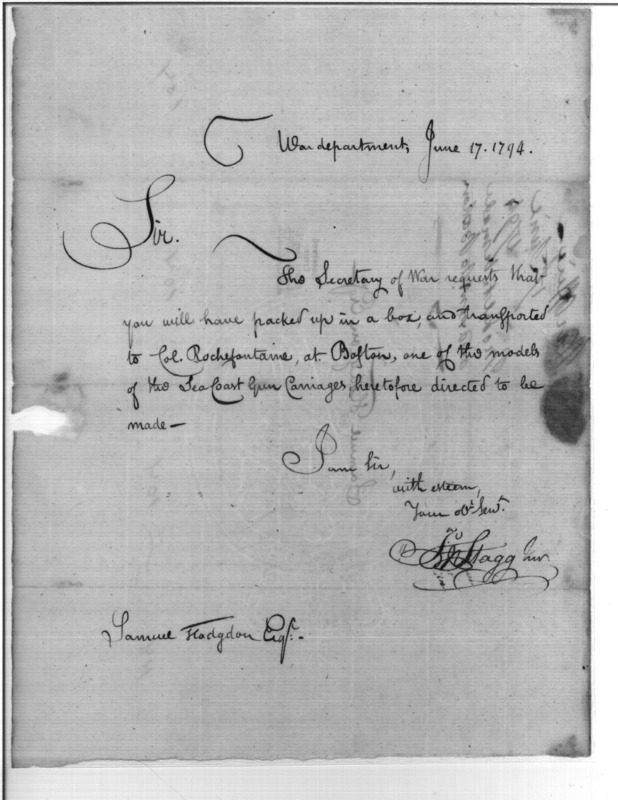 War department, June 17. 1794.
Sir.
The Secretary of War requests that
you will have packed up in a box, and transported
to Col. Rochefontaine, at Boston, one of the models
of the Sea Coast Gun Carriages, heretofore directed to be
made—
I am Sir,
with esteem,
Your obt. Servt.
Jno Stagg Junr
Samuel Hodgdon Esqr.